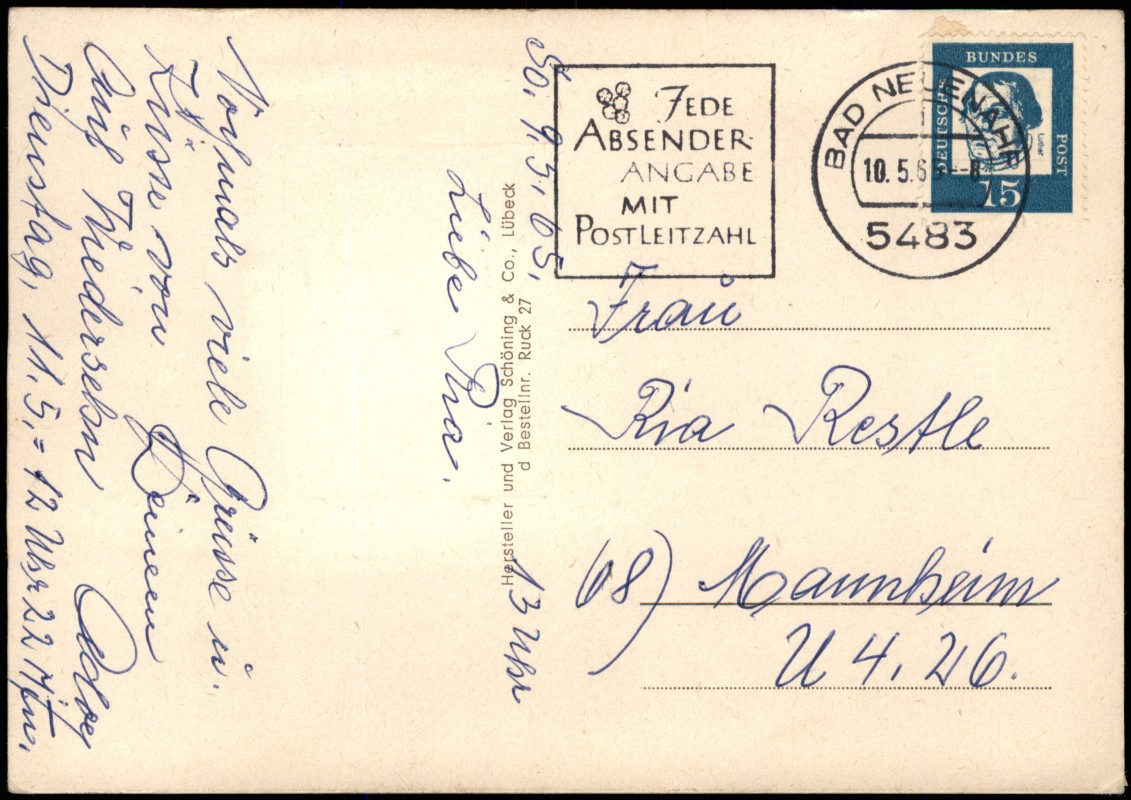 So, 9.5.65, 13 Uhr
Liebe Ria.
Nochmals viele Grüsse u.
Küsse von Deinem
Auf Wiedersehn
Dienstag, 11.5,= 12 Uhr 22
Hersteller und Verlag Schöning & Co., Lübeck
d Bestellnr. Ruck 27
JEDE
ABSENDER-
ANGABE
MIT
POSTLEITZAHL
BAD NEUENAHR
10.5.65--8
5483
DEUTSCHE
BUNDES
POST
Luther
15
Frau
Ria Restle
(68) Mannheim
U 4, 26.